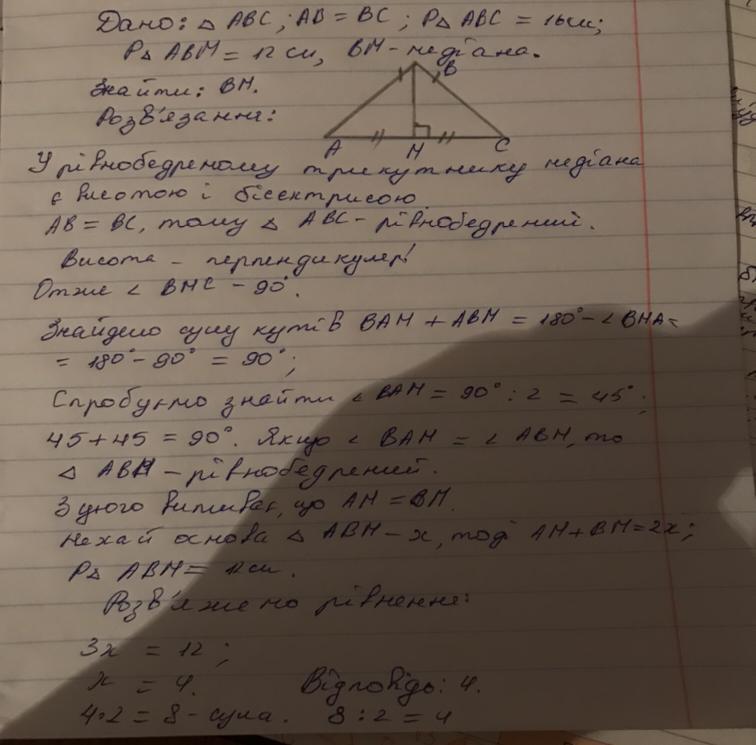 Дано: △ ABC; AB = BC; P△ ABC = 16см;
P△ ABM = 12 см, BM - медіана.
Знайти: BM.
Розв'язання:
B
A M C
У рівнобедреному трикутнику медіана
є висотою і бісектрисою.
AB = BC, тому △ ABC - рівнобедрений.
Висота - перпендикуляр!
Отже ∠ BMC - 90°.
Знайдемо суму кутів BAM + ABM = 180° - ∠ BMA =
= 180° - 90° = 90°;
Спробуємо знайти ∠ BAM = 90° : 2 = 45°;
45 + 45 = 90°. Якщо ∠ BAM = ∠ ABM, то
△ ABM - рівнобедрений.
З цього випливає, що AM = BM.
Нехай основа △ ABM - x, тоді AM + BM = 2x;
P△ ABM = 12 см.
Розв'яжемо рівняння:
3x = 12;
x = 4. Відповідь: 4.
4·2 = 8 - сума. 8 : 2 = 4